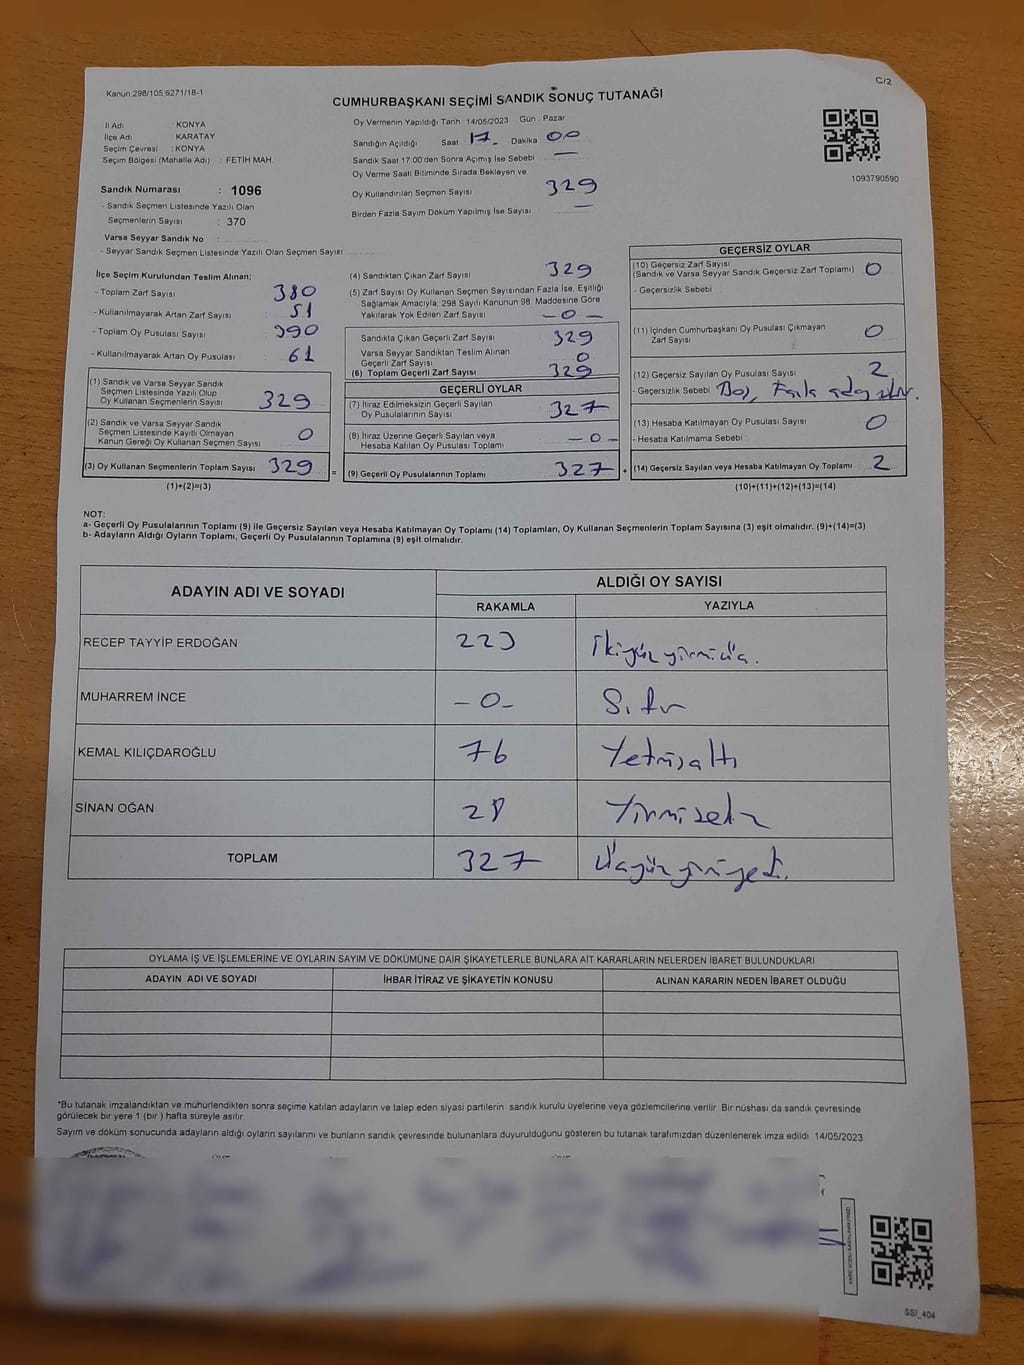 Kanun:298/105.6271/18-1
C/2
CUMHURBAŞKANI SEÇİMİ SANDIK SONUÇ TUTANAĞI
İl Adı : KONYA
İlçe Adı : KARATAY
Seçim Çevresi : KONYA
Seçim Bölgesi (Mahalle Adı) : FETİH MAH.
Sandık Numarası : 1096
- Sandık Seçmen Listesinde Yazılı Olan
Seçmenlerin Sayısı : 370
Varsa Seyyar Sandık No :
- Seyyar Sandık Seçmen Listesinde Yazılı Olan Seçmen Sayısı
Oy Vermenin Yapıldığı Tarih : 14/05/2023 Gün : Pazar
Sandığın Açıldığı Saat 17 Dakika 00
Sandık Saat 17.00'den Sonra Açımış İse Sebebi —
Oy Verme Saati Bitiminde Sırada Bekleyen ve
Oy Kullandırılan Seçmen Sayısı 329
Birden Fazla Sayım Döküm Yapılmış İse Sayısı —
1093790590
İlçe Seçim Kurulundan Teslim Alınan;
- Toplam Zarf Sayısı 380
- Kullanılmayarak Artan Zarf Sayısı 51
- Toplam Oy Pusulası Sayısı 390
- Kullanılmayarak Artan Oy Pusulası 61
(1) Sandık ve Varsa Seyyar Sandık
Seçmen Listesinde Yazılı Olup
Oy Kullanan Seçmenlerin Sayısı 329
(2) Sandık ve Varsa Seyyar Sandık
Seçmen Listesinde Kayıtlı Olmayan
Kanun Gereği Oy Kullanan Seçmen Sayısı 0
(3) Oy Kullanan Seçmenlerin Toplam Sayısı 329 =
(1)+(2)=(3)
(4) Sandıktan Çıkan Zarf Sayısı 329
(5) Zarf Sayısı Oy Kullanan Seçmen Sayısından Fazla İse, Eşitliği
Sağlamak Amacıyla, 298 Sayılı Kanunun 98. Maddesine Göre
Yakılarak Yok Edilen Zarf Sayısı — 0 —
Sandıkta Çıkan Geçerli Zarf Sayısı 329
Varsa Seyyar Sandıktan Teslim Alınan
Geçerli Zarf Sayısı 0
(6) Toplam Geçerli Zarf Sayısı 329
GEÇERLİ OYLAR
(7) İtiraz Edilmeksizin Geçerli Sayılan
Oy Pusulalarının Sayısı 327
(8) İtiraz Üzerine Geçerli Sayılan veya
Hesaba Katılan Oy Pusulası Toplamı — 0 —
(9) Geçerli Oy Pusulalarının Toplamı 327 +
GEÇERSİZ OYLAR
(10) Geçersiz Zarf Sayısı
(Sandık ve Varsa Seyyar Sandık Geçersiz Zarf Toplamı) 0
- Geçersizlik Sebebi :
(11) İçinden Cumhurbaşkanı Oy Pusulası Çıkmayan
Zarf Sayısı 0
(12) Geçersiz Sayılan Oy Pusulası Sayısı 2
- Geçersizlik Sebebi : Boş,
(13) Hesaba Katılmayan Oy Pusulası Sayısı 0
- Hesaba Katılmama Sebebi :
(14) Geçersiz Sayılan veya Hesaba Katılmayan Oy Toplamı 2
(10)+(11)+(12)+(13)=(14)
NOT:
a- Geçerli Oy Pusulalarının Toplamı (9) ile Geçersiz Sayılan veya Hesaba Katılmayan Oy Toplamı (14) Toplamları, Oy Kullanan Seçmenlerin Toplam Sayısına (3) eşit olmalıdır. (9)+(14)=(3)
b- Adayların Aldığı Oyların Toplamı, Geçerli Oy Pusulalarının Toplamına (9) eşit olmalıdır.
ADAYIN ADI VE SOYADI ALDIĞI OY SAYISI
RAKAMLA YAZIYLA
RECEP TAYYİP ERDOĞAN 223 İkiyüz yirmi üç.
MUHARREM İNCE — 0 — Sıfır
KEMAL KILIÇDAROĞLU 76 Yetmişaltı
SİNAN OĞAN 28 Yirmisekiz
TOPLAM 327 Üçyüz yirmiyedi.
OYLAMA İŞ VE İŞLEMLERİNE VE OYLARIN SAYIM VE DÖKÜMÜNE DAİR ŞİKAYETLERLE BUNLARA AİT KARARLARIN NELERDEN İBARET BULUNDUKLARI
ADAYIN ADI VE SOYADI İHBAR İTİRAZ VE ŞİKAYETİN KONUSU ALINAN KARARIN NEDEN İBARET OLDUĞU
*Bu tutanak imzalandıktan ve mühürlendikten sonra seçime katılan adayların ve talep eden siyasi partilerin sandık kurulu üyelerine veya gözlemcilerine verilir. Bir nüshası da sandık çevresinde
görülecek bir yere 1 (bir) hafta süreyle asılır.
Sayım ve döküm sonucunda adayların aldığı oyların sayılarını ve bunların sandık çevresinde bulunanlara duyurulduğunu gösteren bu tutanak tarafımızdan düzenlenerek imza edildi. 14/05/2023
SSI_404